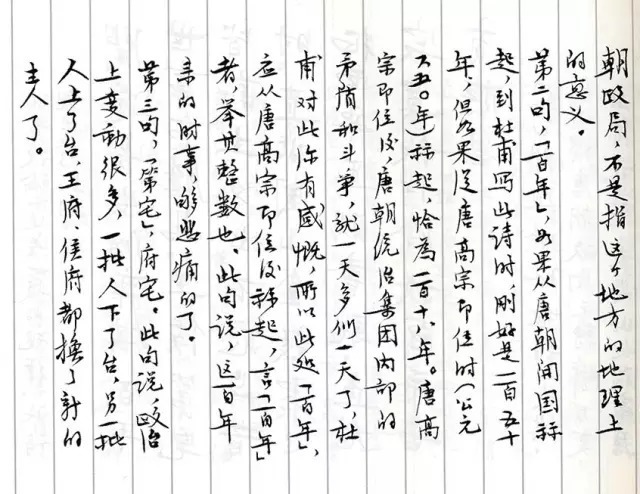 朝政局,不是指这个地方的地理上
的意义。
第二句,「百年」,如果从唐朝开国称
起,到杜甫写此诗时,刚好是一百五十
年,但如果从唐高宗即位时(公元
六五〇年)称起,恰为一百十六年。唐高
宗即位后,唐朝统治集团内部的
矛盾和斗争,就一天多似一天了,杜
甫对此你有感慨,所以此处「百年」,
应从唐高宗即位后称起,言「百年」
者,举其整数也。此句说,这一百年
来的时事,够悲痛的了。
第三句,「第宅」,府宅。此句说,政治
上变动很多,一批人下了台,另一批
人上了台,王府、侯府都换了新的
主人了。